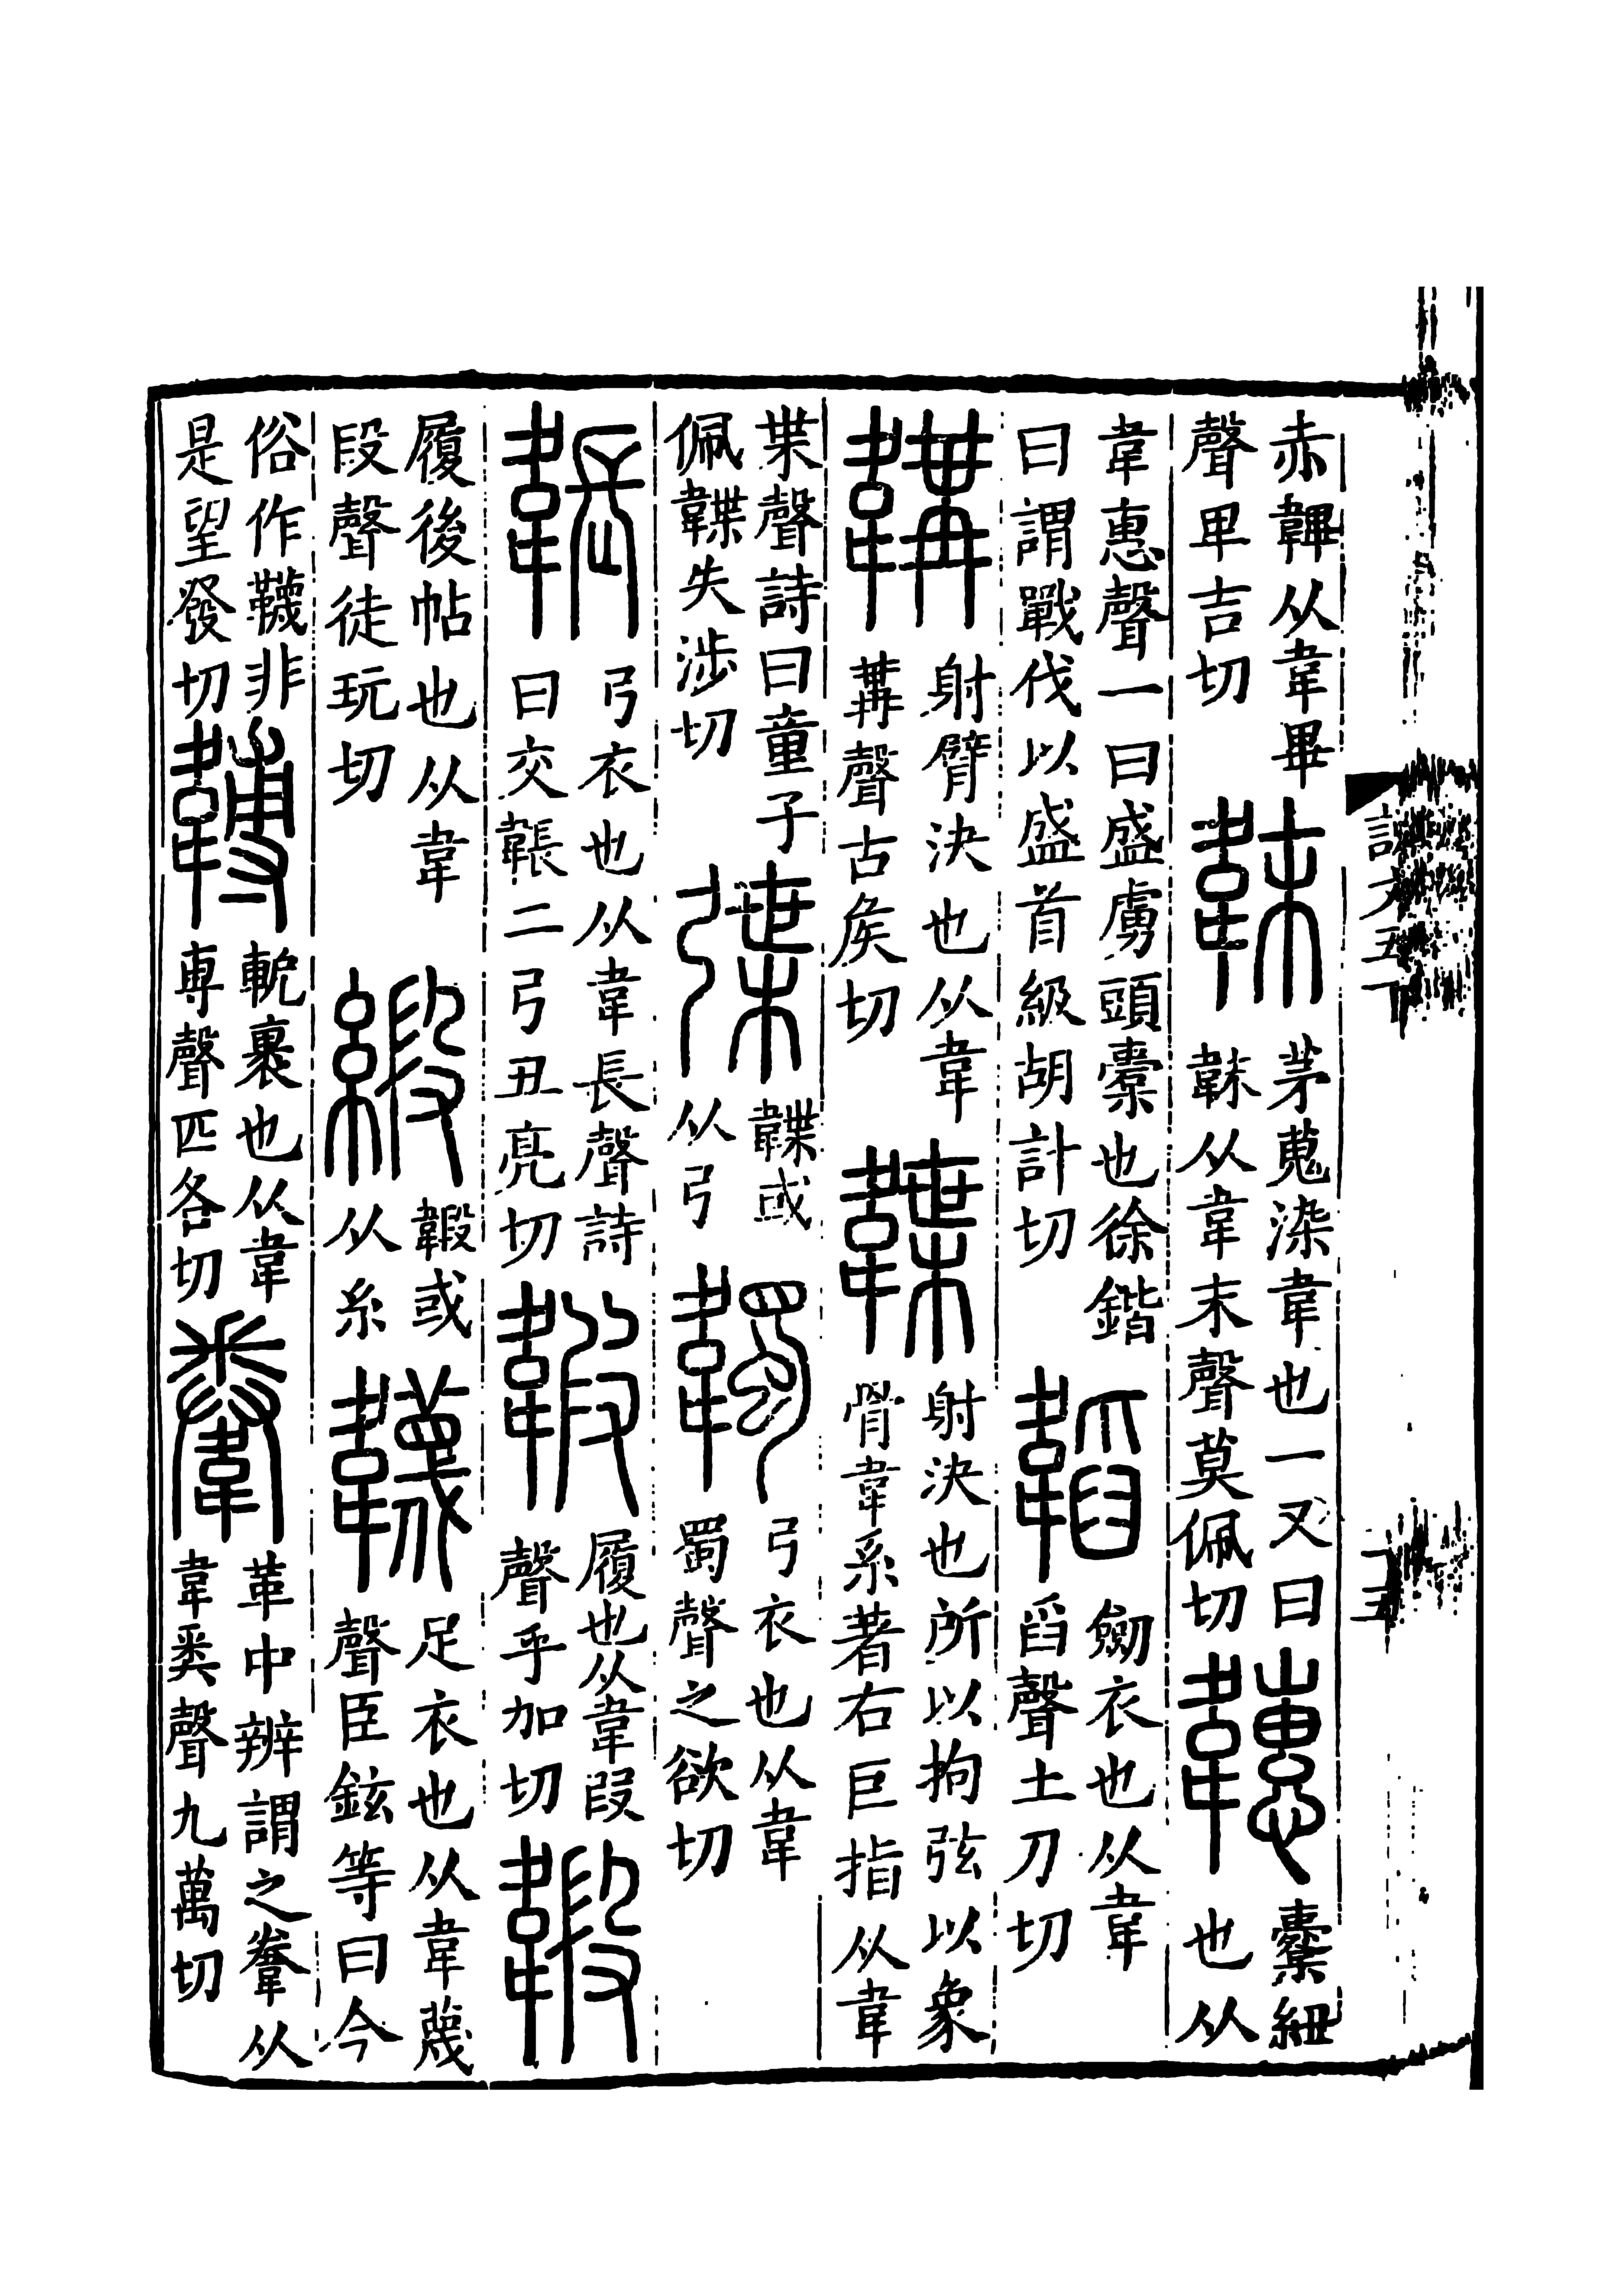 說文五下
赤韠从韋畢聲卑吉切 韎 茅蒐染韋也一又曰韎从韋末聲莫佩切 𩏅 橐紐也从
韋惠聲一曰盛虜頭橐也徐鍇曰謂戰伐以盛首級胡計切 韜 劒衣也从韋舀聲土刀切
韝 射臂決也从韋冓聲古矦切 韘 射決也所以拘弦以象骨韋系著右巨指从韋
枼聲詩曰童子佩韘失涉切 弽 韘或从弓 韣 弓衣也从韋蜀聲之欲切
韔 弓衣也从韋長聲詩曰交韔二弓丑亮切 䪗 履也从韋叚聲乎加切 𩏇
履後帖也从韋段聲徒玩切 緞 𩏇或从糸 韤 足衣也从韋蔑聲臣鉉等曰今
俗作韈非是望發切 䪙 軶裹也从韋尃聲匹各切 韏 革中辨謂之韏从韋𢍏聲九萬切